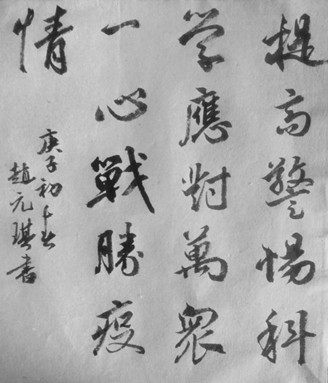 提高警惕科
学應对萬衆
一心戰勝疫
情
庚子初春
趙元琪書